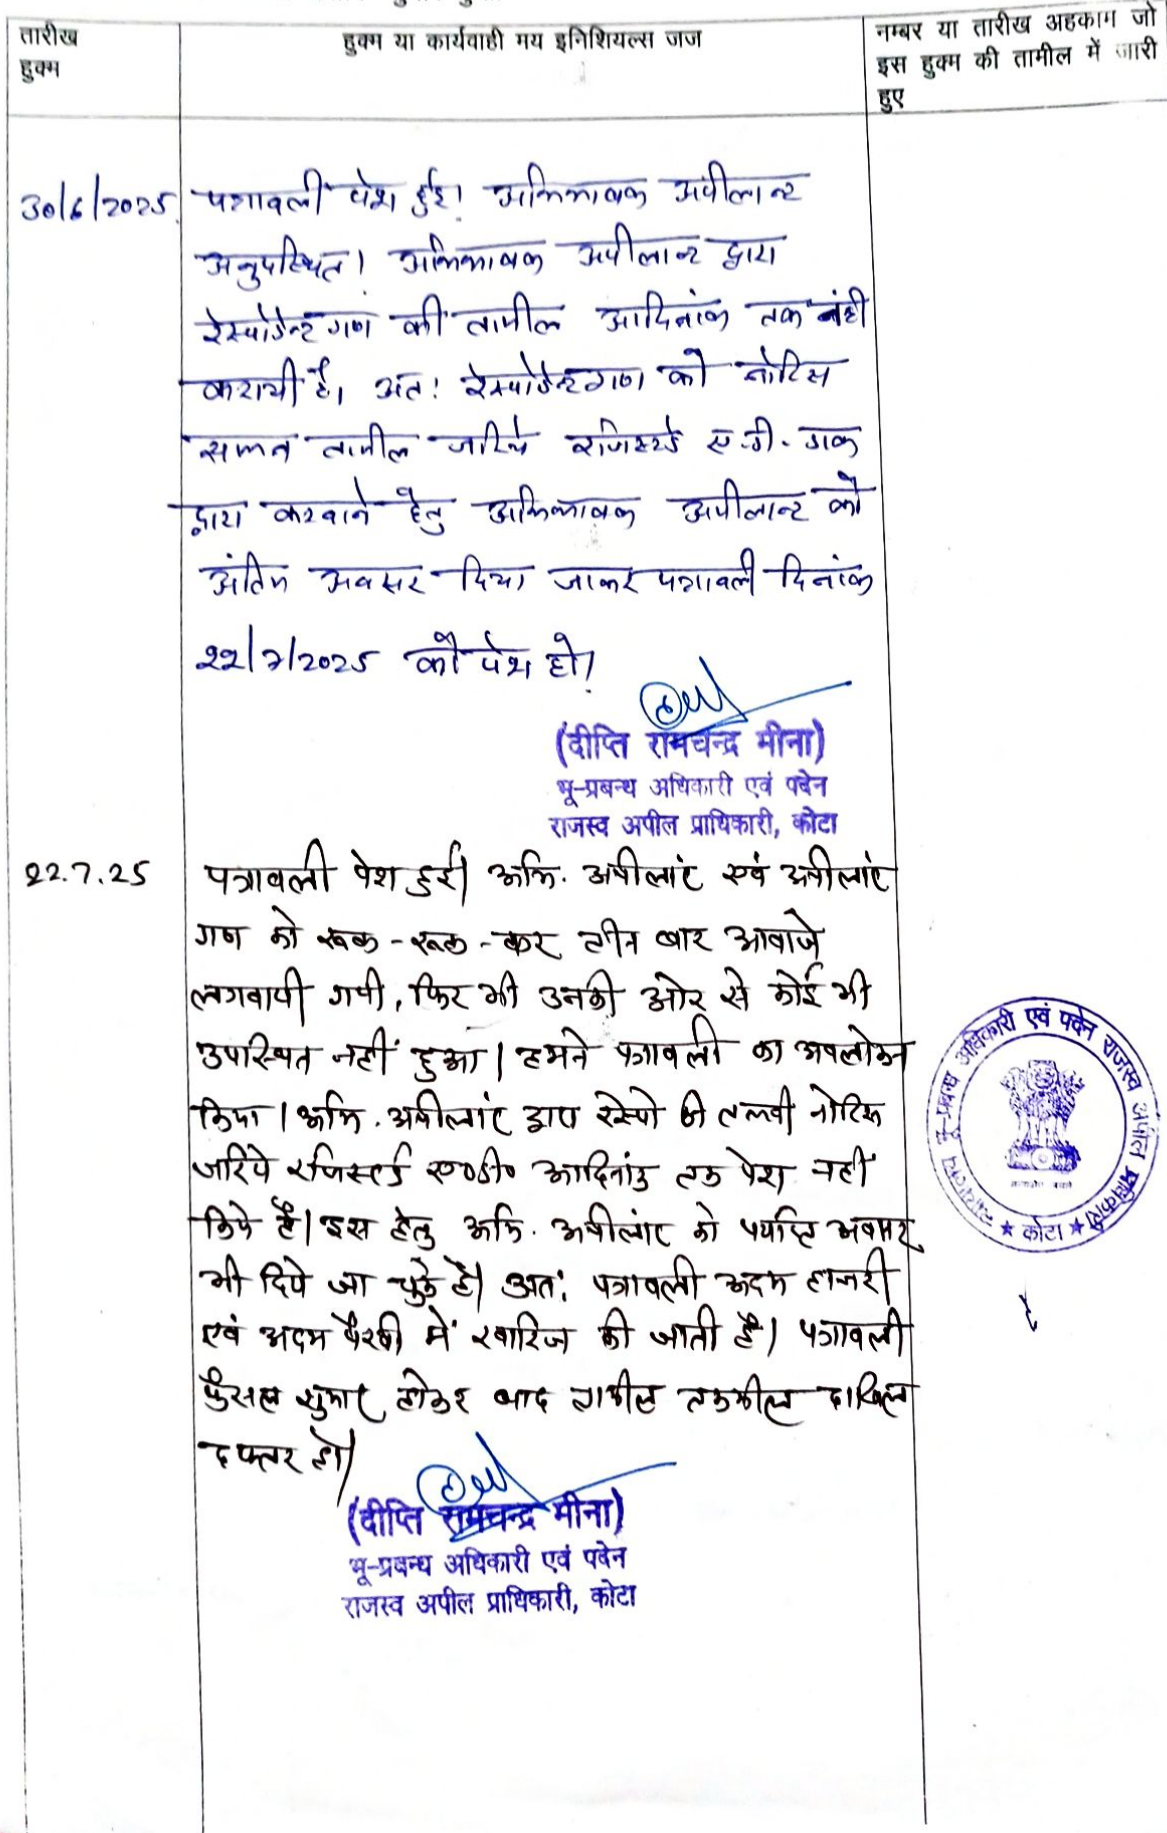 तारीख
हुक्म
हुक्म या कार्यवाही मय इनिशियल्स जज
नम्बर या तारीख अहकाम जो
इस हुक्म की तामील में जारी
हुए
30/6/2025 पत्रावली पेश हुई। अभिभाषक अपीलान्ट
अनुपस्थित। अभिभाषक अपीलान्ट द्वारा
रेस्पोडेन्ट गण की तामील आदिनांक तक नंही
करायी है। अत: रेस्पोडेन्टगण को नोटिस
तामील जरिये रजिस्टर्ड ए.डी. डाक
द्वारा करवाने हेतु अभिभाषक अपीलान्ट को
अंतिम अवसर दिया जाकर पत्रावली दिनांक
22/7/2025 को पेश हो।
(दीप्ति रामचन्द्र मीना)
भू-प्रबन्ध अधिकारी एवं पदेन
राजस्व अपील प्राधिकारी, कोटा
22.7.25 पत्रावली पेश हुई। अभि. अपीलांट एवं अपीलांट
गण को रूक-रूक-कर तीन बार आवाजे
लगवायी गयी, फिर भी उनकी ओर से कोई भी
उपस्थित नहीं हुआ। हमने पत्रावली का अवलोकन
किया। अभि. अपीलांट द्वारा रेस्पो की तलवी नोटिस
जरिये रजिस्टर्ड ए०डी० आदिनांक तक पेश नहीं
किये है। इस हेतु अभि. अपीलांट को पर्याप्त अवसर
भी दिये जा चुके है। अत: पत्रावली अदम हाजरी
एवं अदम पैरवी में खारिज की जाती है। पत्रावली
फैसल शुमार होकर बाद तामील तकमील दाखिल
दफ्तर हो।
(दीप्ति रामचन्द्र मीना)
भू-प्रबन्ध अधिकारी एवं पदेन
राजस्व अपील प्राधिकारी, कोटा
न्यायालय भू-प्रबन्ध अधिकारी एवं पदेन राजस्व अपील प्राधिकारी
★ कोटा ★